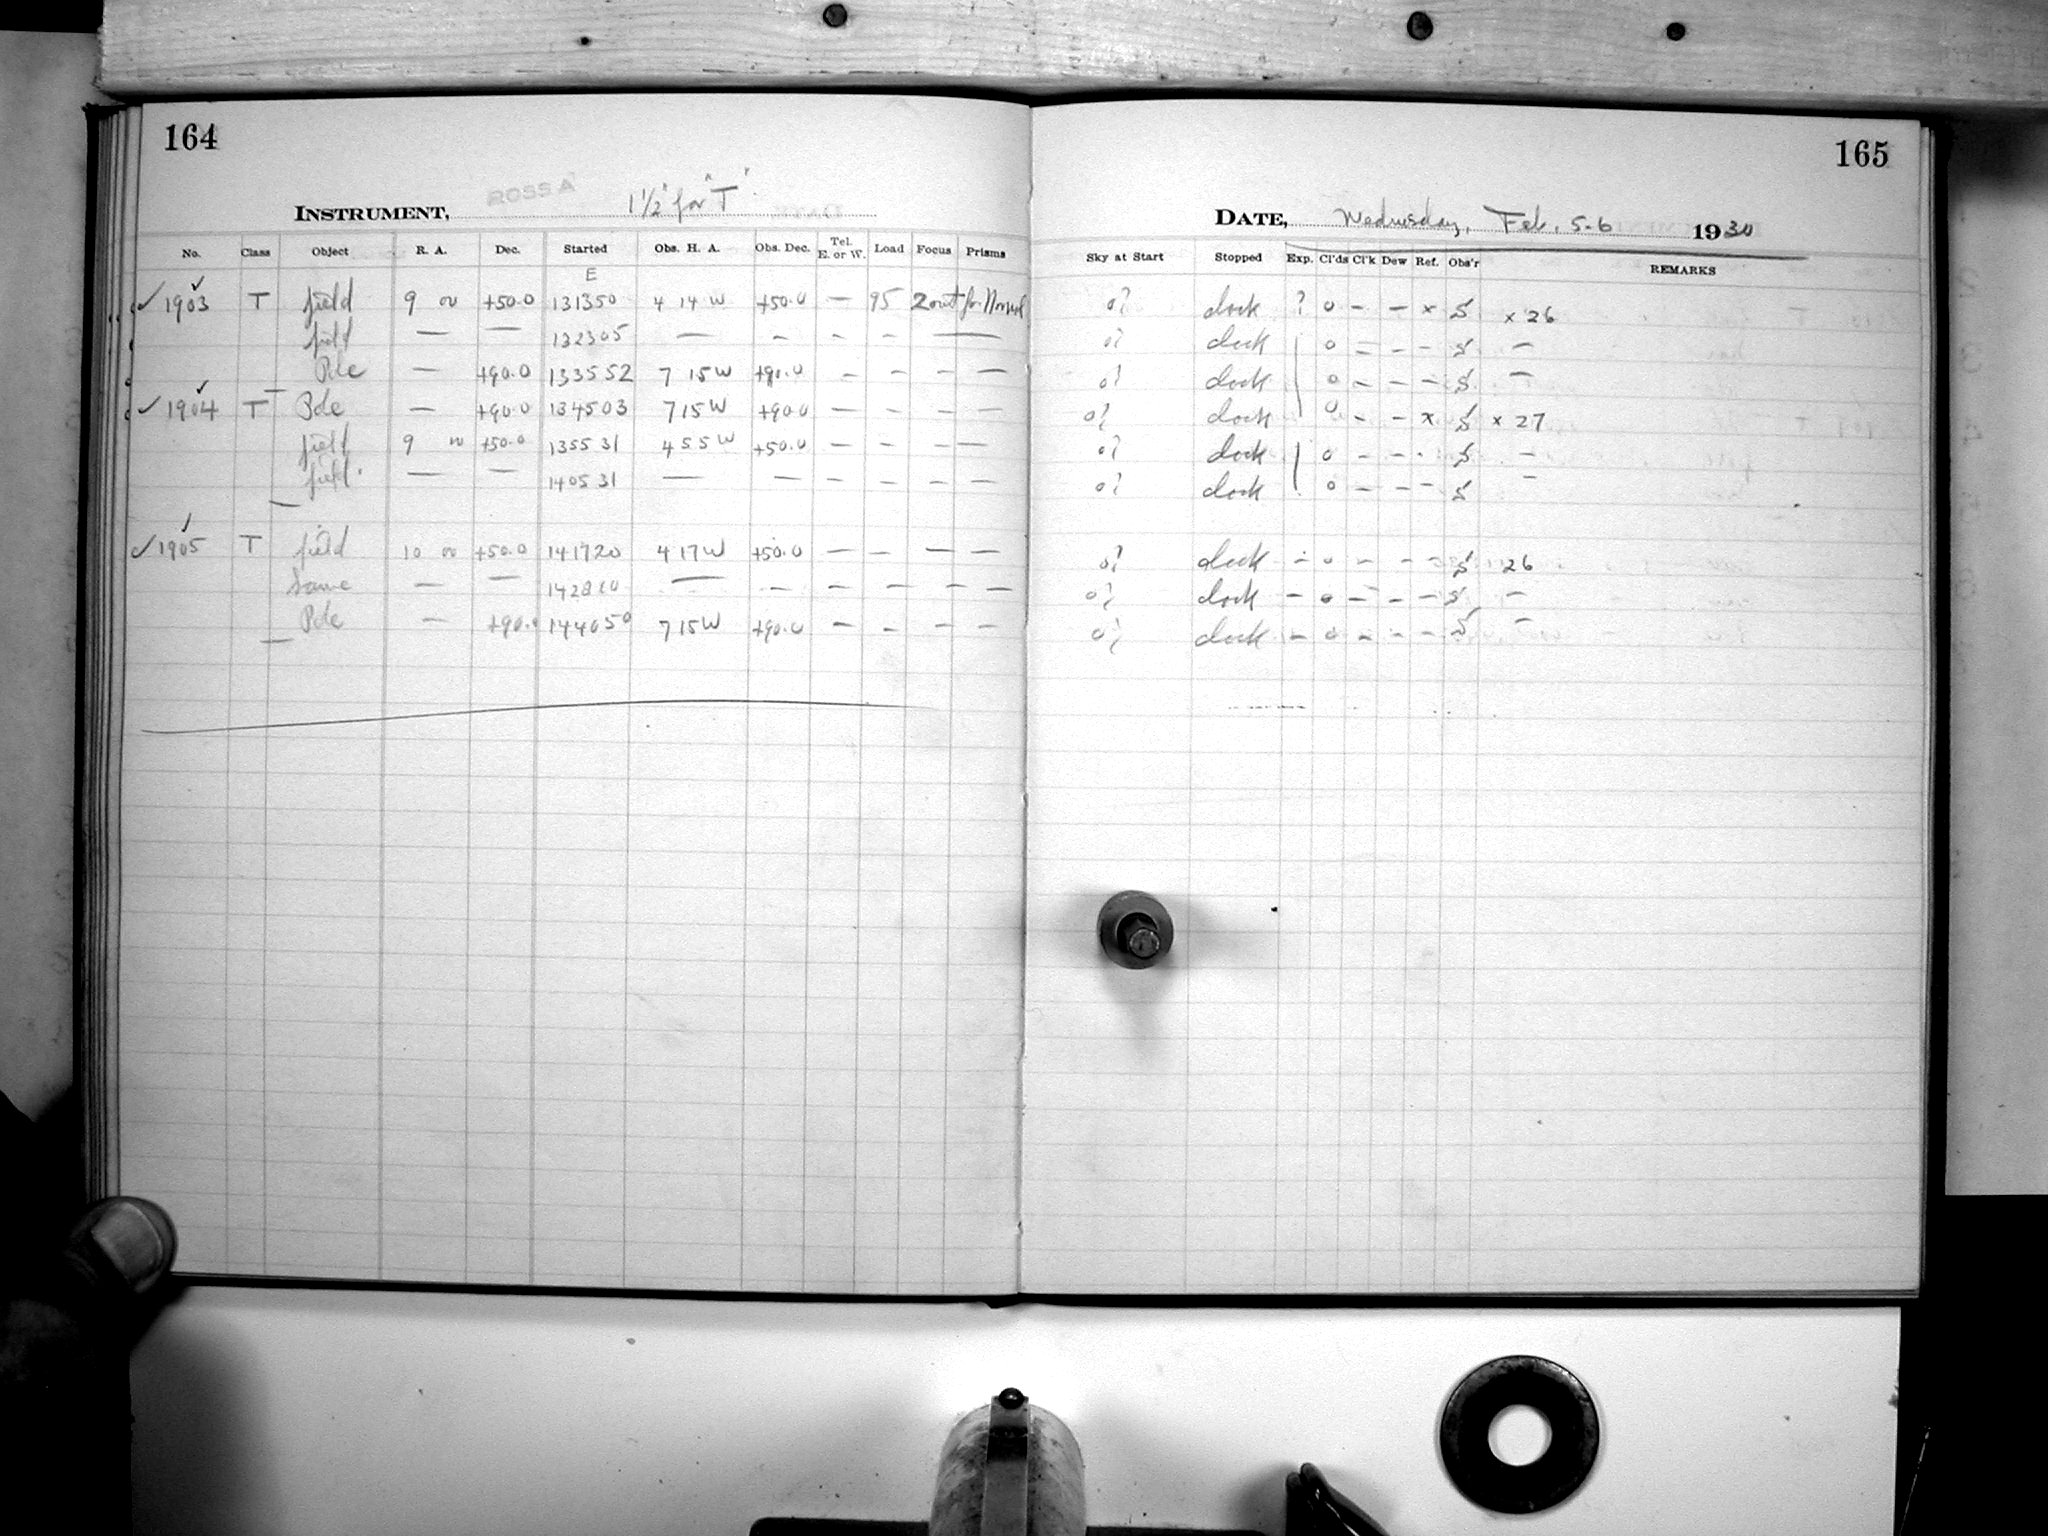 164
ROSS A 1 1/2" for "T"
INSTRUMENT,
No. Class Object R. A. Dec. Started Obs. H. A. Obs. Dec. Tel. E. or W. Load Focus Prisms
E
✓ 1903 ✓ T field 9 00 +50.0 131350 4 14 W +50.0 — 95 2 out for Normal
field — — 132305 — — — — —
Pole — +90.0 133552 7 15 W +90.0 — — — —
✓ 1904 ✓ T Pole — +90.0 134503 7 15 W +90.0 — — — —
field 9 00 +50.0 135531 4 55 W +50.0 — — — —
field — — 140531 — — — — — —
✓ 1905 ✓ T field 10 00 +50.0 141720 4 17 W +50.0 — — — —
Same — — 142810 — — — — — —
Pole — +90.0 144050 7 15 W +90.0 — — — —
165
DATE, Wednesday, Feb. 5-6 1930
Sky at Start Stopped Exp. Cl'ds Cl'k Dew Ref. Obs'r REMARKS
0? clock ? 0 — — x S x 26
0? clock 0 — — — S —
0? clock 0 — — — S —
0? clock 0 — — x S x 27
0? clock 0 — — - S —
0? clock 0 — — — S —
0? clock — 0 — — — S 26
0? clock — 0 — — — S —
0? clock — 0 — — — S —